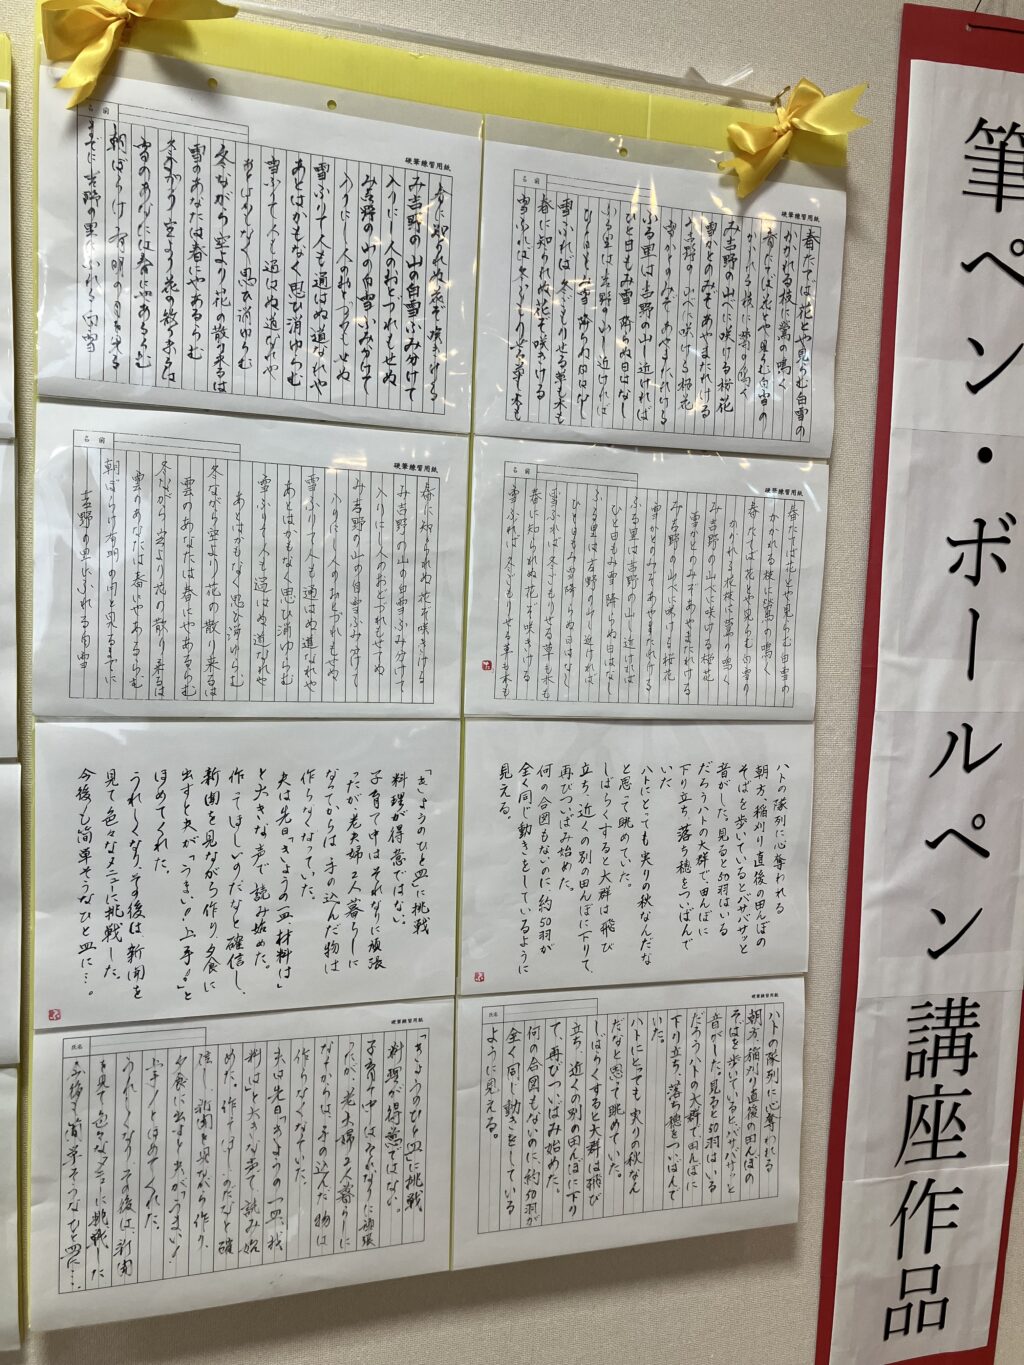 筆ペン・ボールペン講座作品
硬筆練習用紙
名前
春たてば花とや見らむ白雪の
かかれる枝に鶯の鳴く
春たてば花とや見らむ白雪の
かかれる枝に鶯の鳴く
み吉野の山べに咲ける桜花
雪かとのみぞあやまたれける
み吉野の山べに咲ける桜花
雪かとのみぞあやまたれける
ふる里は吉野の山し近ければ
ひと日もみ雪降らぬ日はなし
ふる里は吉野の山し近ければ
ひと日もみ雪降らぬ日はなし
雪ふれば冬ごもりせる草も木も
春に知られぬ花ぞ咲きける
雪ふれば冬ごもりせる草も木も
硬筆練習用紙
名前
春に知られぬ花ぞ咲きける
み吉野の山の白雪ふみ分けて
入りにし人のおとづれもせぬ
み吉野の山の白雪ふみ分けて
入りにし人のおとづれもせぬ
雪ふりて人も通はぬ道なれや
あとはかもなく思ひ消ゆらむ
雪ふりて人も通はぬ道なれや
あとはかもなく思ひ消ゆらむ
冬ながら空より花の散り来るは
雲のあなたは春にやあるらむ
冬ながら空より花の散り来るは
雲のあなたは春にやあるらむ
朝ぼらけ有明の月と見る
までに吉野の里にふれる白雪
硬筆練習用紙
名前
春たてば花とや見らむ白雪の
かかれる枝に鶯の鳴く
春たてば花とや見らむ白雪の
かかれる花枝に鶯の鳴く
み吉野の山べに咲ける桜花
雪かとのみぞあやまたれける
み吉野の山べに咲ける桜花
雪かとのみぞあやまたれける
ふる里は吉野の山し近ければ
ひと日もみ雪降らぬ日はなし
ふる里は吉野の山し近ければ
ひと日もみ雪降らぬ日はなし
雪ふれば冬ごもりせる草も木も
春に知られぬ花ぞ咲きける
雪ふれば冬ごもりせる草も木も
硬筆練習用紙
名前
春に知られぬ花ぞ咲きける
み吉野の山の白雪ふみ分けて
入りにし人のおとづれもせぬ
み吉野の山の白雪ふみ分けて
入りにし人のおとづれもせぬ
雪ふりて人も通はぬ道なれや
あとはかもなく思ひ消ゆらむ
雪ふりて人も通はぬ道なれや
あとはかもなく思ひ消ゆらむ
冬ながら空より花の散り来るは
雲のあなたは春にやあるらむ
冬ながら空より花の散り来るは
雲のあなたは春にやあるらむ
朝ぼらけ有明の月と見るまでに
吉野の里にふれる白雪
ハトの隊列に心奪われる
朝方、稲刈り直後の田んぼの
そばを歩いているとバサバサッと
音がした。見ると50羽はいる
だろうハトの大群で、田んぼに
下り立ち、落ち穂をついばんで
いた
ハトにとっても実りの秋なんだな
と思って眺めていた。
しばらくすると大群は飛び
立ち、近くの別の田んぼに下りて、
再びついばみ始めた。
何の合図もないのに、約50羽が
全く同じ動きをしているように
見える。
「きょうのひと皿」に挑戦
料理が得意ではない。
子育て中はそれなりに頑張
ったが、老夫婦2人暮らしに
なってからは、手の込んだ物は
作らなくなっていた。
夫は先日「きょうの一皿、材料は」
と大きな声で読み始めた。
作ってほしいのだなと確信し、
新聞を見ながら作り、夕食に
出すと夫が「うまい!上手!」と
ほめてくれた。
うれしくなり、その後は新聞を
見て色々なメニューに挑戦した。
今後も簡単そうなひと皿に…。
硬筆練習用紙
氏名
ハトの隊列に心奪われる
朝方、稲刈り直後の田んぼの
そばを歩いているとバサバサッと
音がした。見ると50羽はいる
だろうハトの大群で、田んぼに
下り立ち、落ち穂をついばんで
いた。
ハトにとっても実りの秋なん
だなと思って眺めていた。
しばらくすると大群は飛び
立ち、近くの別の田んぼに下り
て、再びついばみ始めた。
何の合図もないのに約50羽が
全く同じ動きをしている
ように見える。
硬筆練習用紙
氏名
「きょうのひと皿」に挑戦
料理が得意ではない。
子育て中はそれなりに頑張
ったが、老夫婦2人暮らしに
なってからは、手の込んだ物は
作らなくなっていた。
夫は先日「きょうの一皿、材
料は」と大きな声で読み始
めた。作ってほしいのだなと確
信し、新聞を見ながら作り、
夕食に出すと夫が「うまい!
上手!」とほめてくれた。
うれしくなり、その後は、新聞
を見て色々なメニューに挑戦した
今後も簡単そうなひと皿に…。